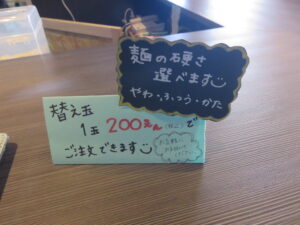 麺の硬さ
選べます
やわ・ふつう・かた
替え玉
1玉 200えん(税込)で
ご注文できます